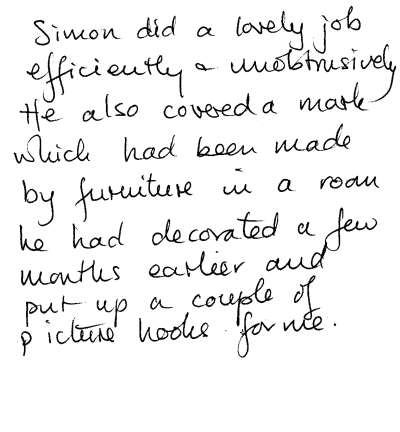 Simon did a lovely job
efficiently & unobtrusively
He also covered a mark
which had been made
by furniture in a room
he had decorated a few
months earlier and
put up a couple of
picture hooks for me.